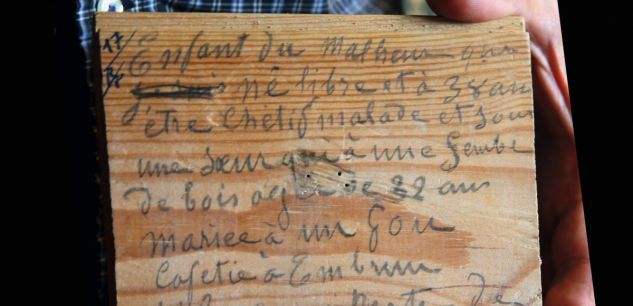 17/
Enfant du Malheur que
né libre et à 38 an
être chétif malade et
une sœur qui à une Jembe
de bois agée de 22 ans
Mariee à un fou
Cafetié à Embrun
de